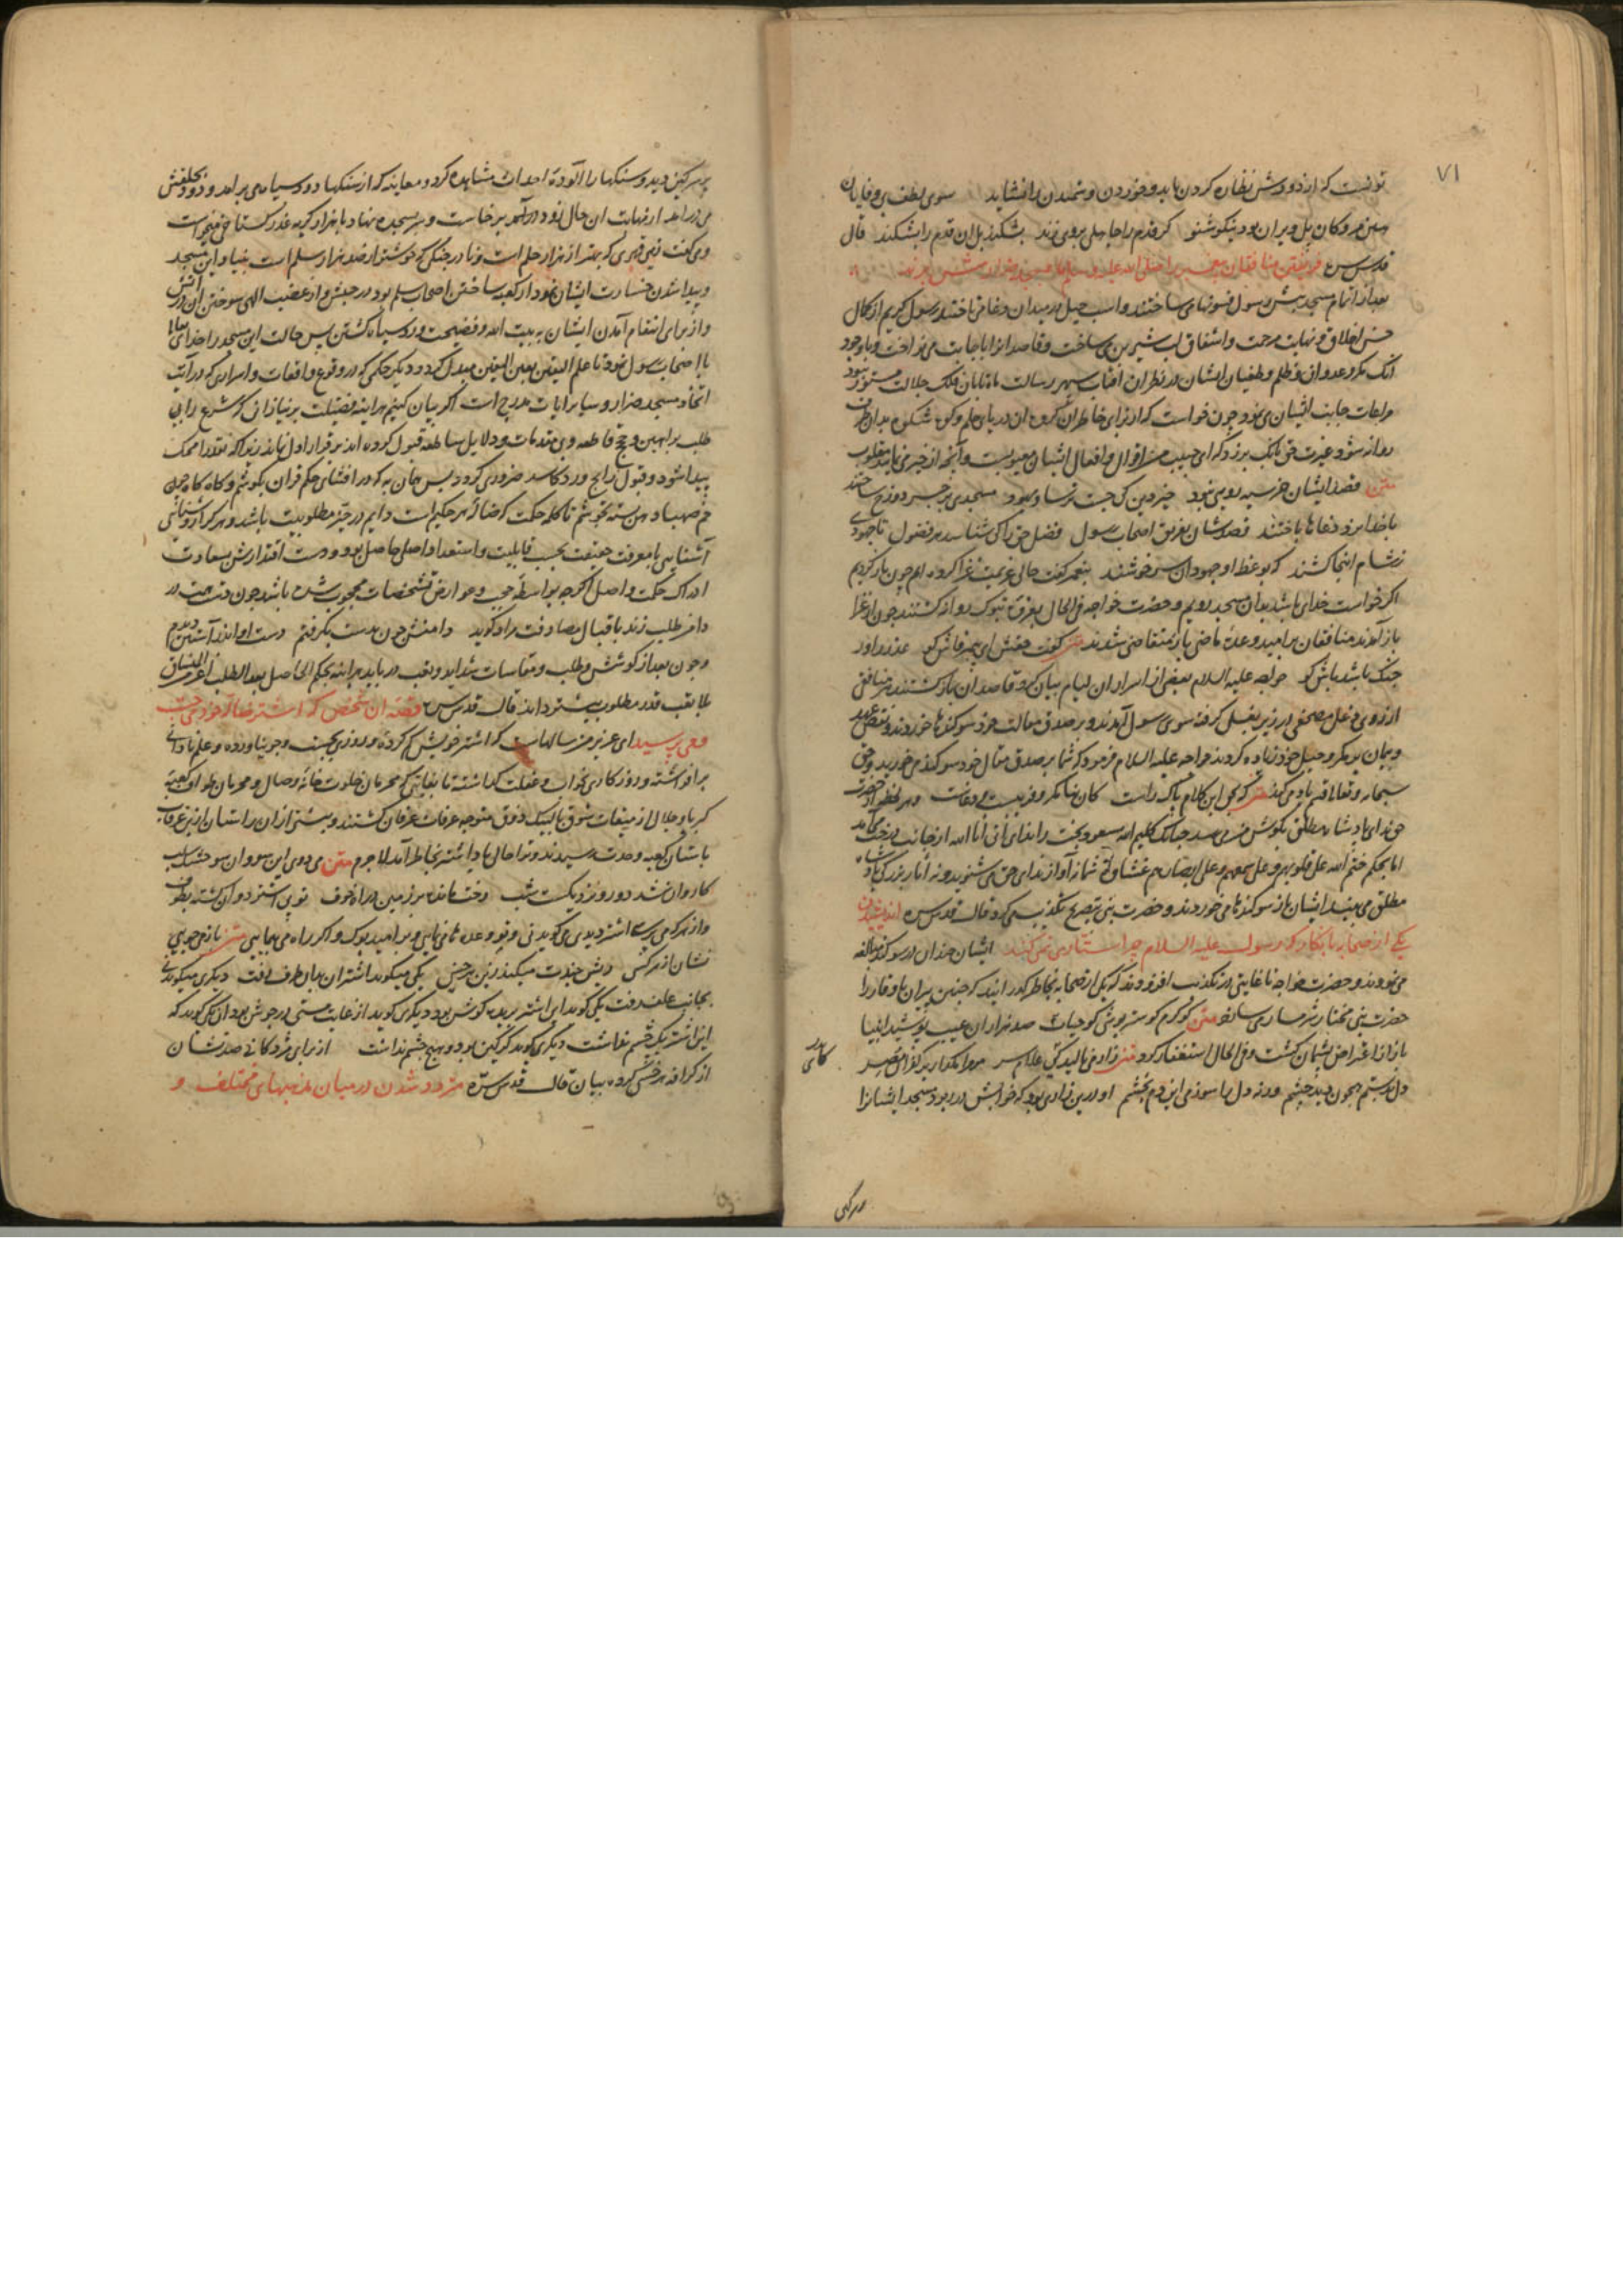 ۷۱
توانست که از دو روش نظاره کردن باید و خوردن و شمیدن را نشاید سوی لطف بی وفایان
هین مرو کان پل ویران بود نیکو شنو گر قدم را جاهلی بروی زند بشکند پل آن قدم را بشکند قال
قدس سره فریفتن منافقان پیغمبر را صلی الله علیه و سلم
بعد از اتمام مسجد پیش رسول فسونها می ساختند و اسب حیل در میدان دغا می تاختند رسول کریم از کمال
حسن اخلاق و نهایت رحمت و اشفاق لب شیرین می ساخت و قاصدانرا باجابت می نواخت و با وجود
آنک مکر و عدوان و ظلم و طغیان ایشان در نظر آن آفتاب سپهر رسالت ماه تابان فلک جلالت مستور نبود
مراعات جانب ایشان می نمود چون خواست که از برای خاطر آن گروه آن دریای حلم و کوه شکوه بدان طرف
روانه شود غیرت حق بانگ برزد که ای حبیب من اقوال و افعال ایشان معیوبست و آنچه از خبر می نمایند مقلوب
متن قصد ایشان جز سیه رویی نبود خیر دین کی جست ترسا و جهود مسجدی بر جسر دوزخ ساختند
با خدا نرد دغاها باختند قصدشان تفریق اصحاب رسول فضل حق را کی شناسد هر فضول تا جهودی
ز شام اینجا کشند که بوعظ او جهودان سرخوشند پیغمبر گفت حالی عزیمت غزا کرده ایم چون باز گردیم
اگر خواست خدای باشد بدان مسجد رویم و حضرت خواجه فی الحال بغزوۀ تبوک روانه گشتند چون از غزا
باز آمدند منافقان بر امید وعدۀ ماضی باز متقاضی شدند متن گفت حقش ای پیمبر فاش گو عذر را ور
جنگ باشد باش گو خواجه علیه السلام بعضی از اسرار آن لیام بیان کرد قاصدان باز گشتند هر منافق
از روی دغل مصحفی در زیر بغل گرفته سوی رسول آمدند و بر صدق مقالت خود سوگندها خوردند و نقض عهد
و پیمان بر مکر و حیل خود زیاده کردند خواجه علیه السلام فرمود که شما بر صدق مقال خود سوگند می خورید و حق
سبحانه و تعالی قسم یاد می کند متن که بحق این کلام پاک راست کان بنا مکر و فریب بی وفاست و هر لحظه از حضرت
حق ندای پادشاه مطلق بگوش من می رسد چنانک کلیم الله مسعود بخت را ندای انی انا الله از جانب درخت می آمد
اما بحکم ختم الله علی قلوبهم و علی سمعهم و علی ابصارهم غشاوة شما نه آواز ندای حق می شنوید و نه آثار بزرگی پادشاه
مطلق می بینید ایشان باز سوگندها می خوردند و حضرت نبی بتصریح تکذیب می کرد قال قدس سره اندیشیدن
یکی از صحابه بانکار که رسول علیه السلام چرا ستاری نمی کند ایشان چندان در سوگند مبالغه
می نمودند و حضرت خواجه تا غایتی در تکذیب افزودند که یکی از صحابه بخاطر گذرانید که چنین پیران با وقار را
حضرت نبی مختار شرمسار می سازد متن کو کرم کو ستر پوشی کو حیا صد هزاران عیب پوشند انبیا
باز از اعتراض پشیمان گشت و فی الحال استغفار کرد متن زار می نالید کی علام سر مر مرا مگذار بر کفران مصر
دل بدستم همچون دید چشم ورنه دل را سوزمی این دم بخشم او درین زاری بود که خوابش در ربود مسجد ایشانرا
پر سرگین دید و سنگها را آلودۀ احداث مشاهده کرد و معاینه که از سنگها دود سیاه می برآمد و دود بحلقش
می درآمد از نهایت آن حال زود در آمد برخاست و سر بسجده نهاد با هزار گریه عذر گستاخی می خواست
و می گفت زهی قهری که بهتر از هزار حلم است و نادر جنگی که خوشتر از صد هزار سلم است بنیاد این مسجد
و پیدا شدن جسارت ایشان نمودار کعبه ساختن اصحاب سلم بود در حبش و از غضب الهی سوختن آن در آتش
و از برای انتقام آمدن ایشان به بیت الله و فضیحت و رو سیاه گشتن پس حالت این مسجد را خدای تعالی
با اصحاب رسول نمود تا علم الیقین بعین الیقین مبدل گردد و دیگر حکمی که در وقوع واقعات و اسراری که در آیت
اتخاذ مسجد ضرار و سایر آیات مدرج است اگر بیان کنیم هر آینه فضیلت بر نیازانی که شرع را بی
طلب براهین و حجج قاطعه و بی مقدمات و دلایل ساطعه قبول کرده اند برقرار اول نماند زیرا که نقد را محک
پیدا شود و قبول رایج و رد کاسد ضروری گردد پس همان به که در افشای حکم قرآن بکوشم و گاه گاه جرعه
خم صهبا دهن بسته بخوشم تا کاله حکمت که ضالۀ هر حکیم است دایم در حیز مطلوبیت باشد و هر که از روشنایی
آشنایی با معرفت حقیقت بحسب قابلیت و استعداد اصلی حاصل بود و دست اقتدارش بسعادت
ادراک حکمت واصل اگر چه بواسطه حجب و عوارض تشخصات محجوب شده باشد چون دست همت در
دامن طلب زند باقبال مصادفت مراد گوید دامنش چون بدست بگرفتم دست او اندر آستین دیدم
و چون بعد از کوشش و طلب و مقاسات شداید و تعب دریابد هر آینه بحکم الحاصل بعد الطلب اعز من المنساق
بلا تعب قدر مطلوب بیشتر داند قال قدس سره قصۀ آن شخص که اشتر ضالۀ خود می جست
و می پرسید ای عزیز من سالهاست که اشتر خویش گم کردۀ و روزی بجست و جو نیاورده و علم نادانی
برافراشته و روزگار بخواب و غفلت گذاشته تا بغایتی که محرمان خلوت خانۀ وصال و محرمان طواف کعبۀ
کبریا و جلال از میقات شوق بالبیک ذوق متوجه عرفات عرفان گشتند و بیشتر از آن راستان از بزغرقاب
باستان کعبه وحدت رسیدند و ترا حال یاد اشتر بخاطر آمد لاجرم متن می دوی این سو و آن سو خشک لب
کاروان شد دور و نزدیکست شب رخت مانده بر زمین در راه خوف تو پی اشتر دوان گشته بطوف
و از هر که می پرسی اشتر دیدی می گوید نی و تو وعده ها می نمایی و بر امید بوک و مگر راه می پیمایی متن باز می جویی
نشان از هر کسی ریش خندت میکند زین هر خسی یکی میگوید اشتر آن بدان طرف رفت دیگری میگوید نی
بجانب علف رفت یکی گوید ای اشتر بریده گوش بود دیگری گوید از غایت مستی در جوش بود آن یکی گوید که
این اشتر یک چشم نداشت دیگری گوید گرگین بود و هیچ پشم نداشت از برای مژدگانی صد نشان
از گزافه هر خسی کرده بیان قال قدس سره متردد شدن در میان مذهبهای مختلف و